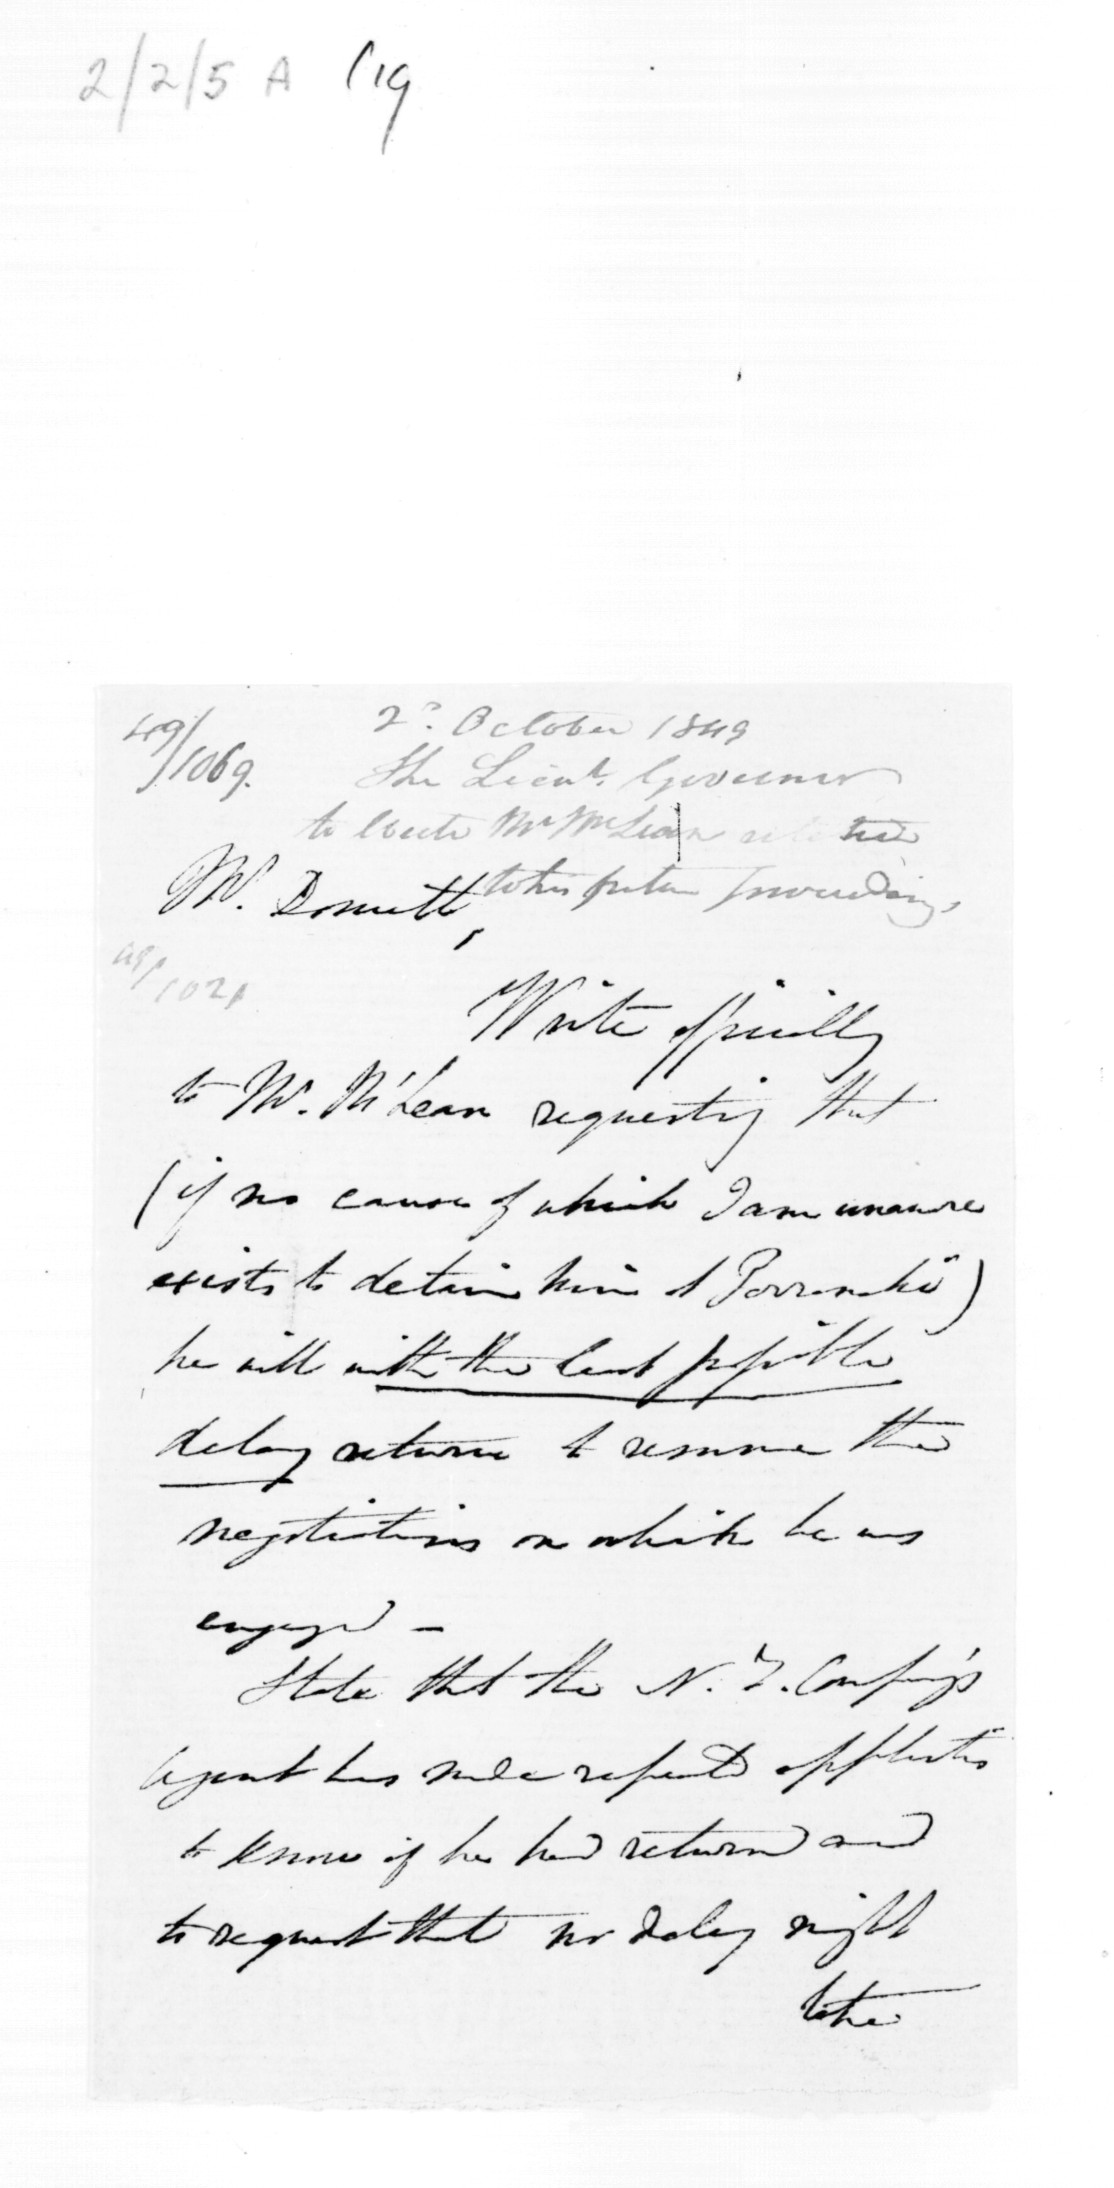 2/2/5 A (19
49/1069.
2d. October 1849
The Lieut. Governor
to write Mr McLean relative
to his future proceedings
Mr. Domett,
49/1021
Write officially
to Mr. McLean requesting that
(if no cause of which I am unaware
exists to detain him at Taranaki)
he will with the least possible
delay return to resume the
negotiations on which he was
engaged -
State that the N. Z. Company's
Agent has made repeated applications
to know if he had returned and
to request that no delay might
take